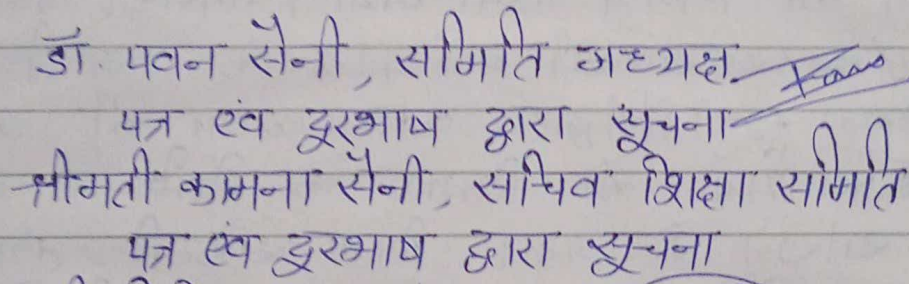 डॉ. पवन सैनी, समिति अध्यक्ष
पत्र एंव दूरभाष द्वारा सूचना
श्रीमती कामना सैनी, सचिव शिक्षा समिति
पत्र एंव दूरभाष द्वारा सूचना